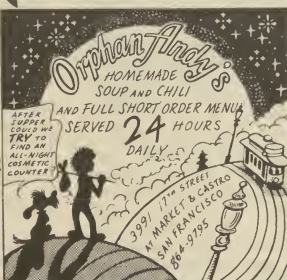 Orphan Andy's
HOMEMADE
SOUP AND CHILI
AND FULL SHORT ORDER MENU
SERVED 24 HOURS
DAILY
AFTER
SUPPER
COULD WE
TRY TO
FIND AN
ALL-NIGHT
COSMETIC
COUNTER
3991 17TH STREET
AT MARKET & CASTRO
SAN FRANCISCO
864-9795